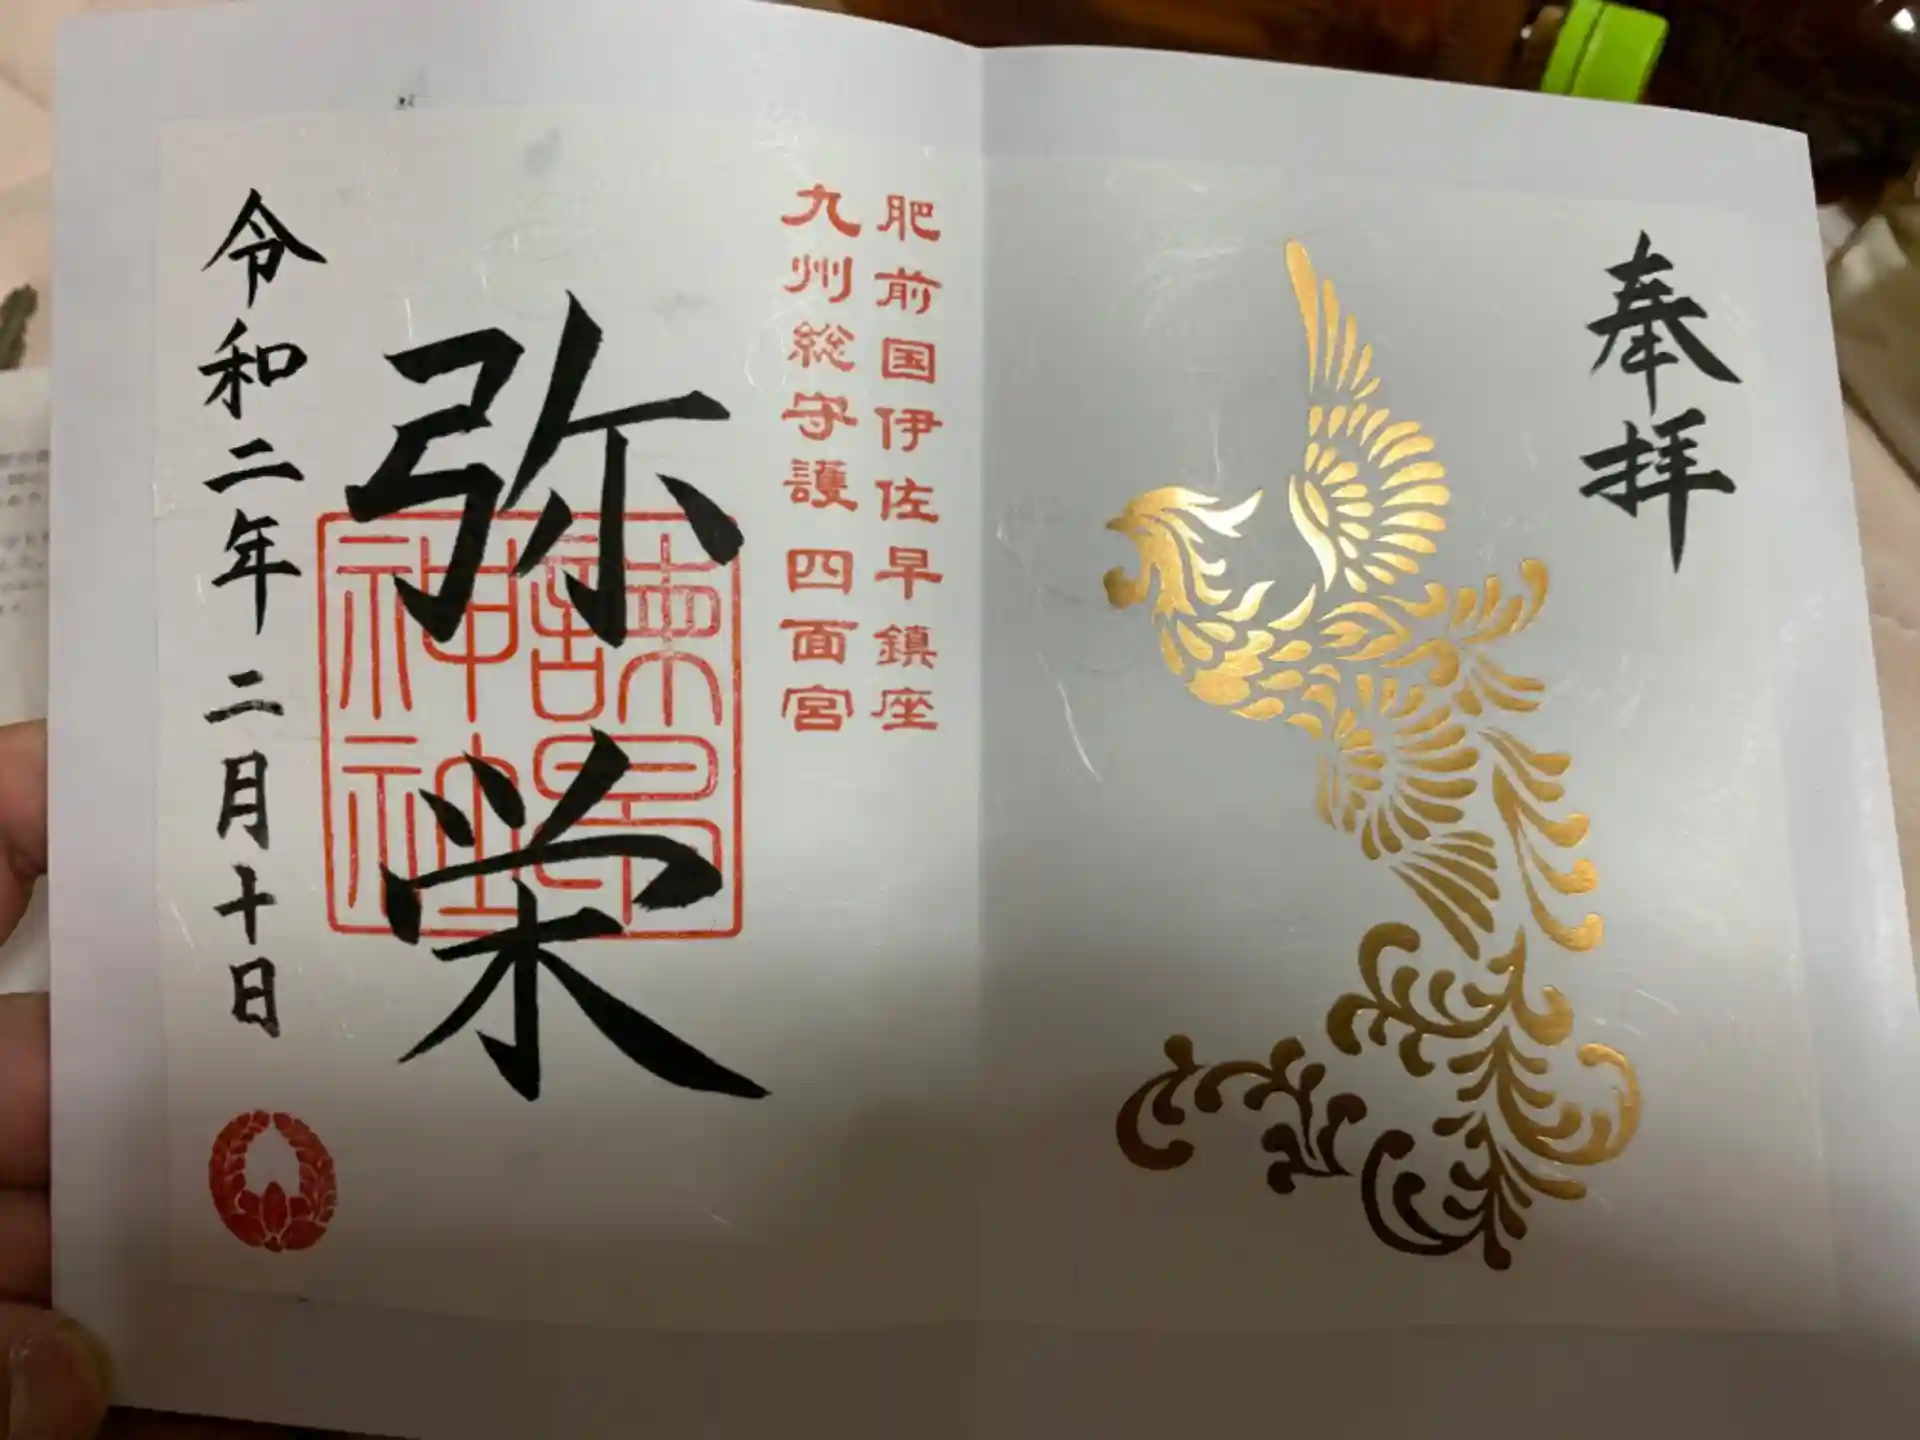 奉拝
肥前国伊佐早鎮座
九州総守護 四面宮
弥栄
諫早神社
令和二年二月十日